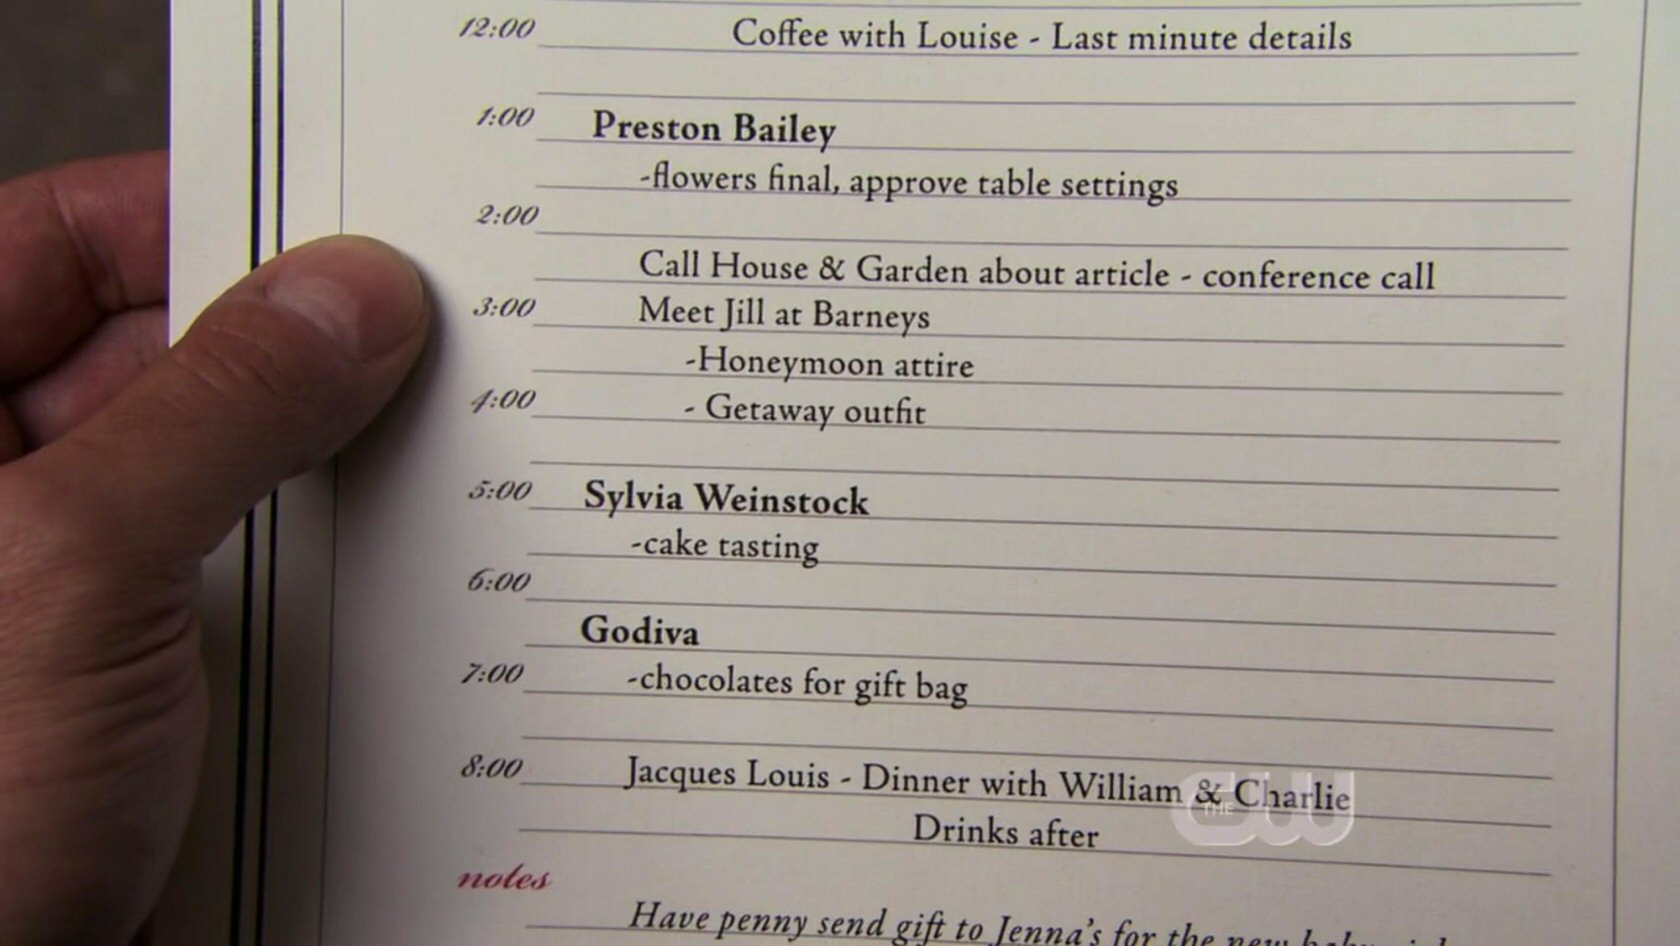 12:00 Coffee with Louise - Last minute details
1:00 Preston Bailey
-flowers final, approve table settings
2:00
Call House & Garden about article - conference call
3:00 Meet Jill at Barneys
-Honeymoon attire
4:00 - Getaway outfit
5:00 Sylvia Weinstock
-cake tasting
6:00
Godiva
7:00 -chocolates for gift bag
8:00 Jacques Louis - Dinner with William & Charlie
Drinks after
THE CW
notes
Have penny send gift to Jenna's for the new baby